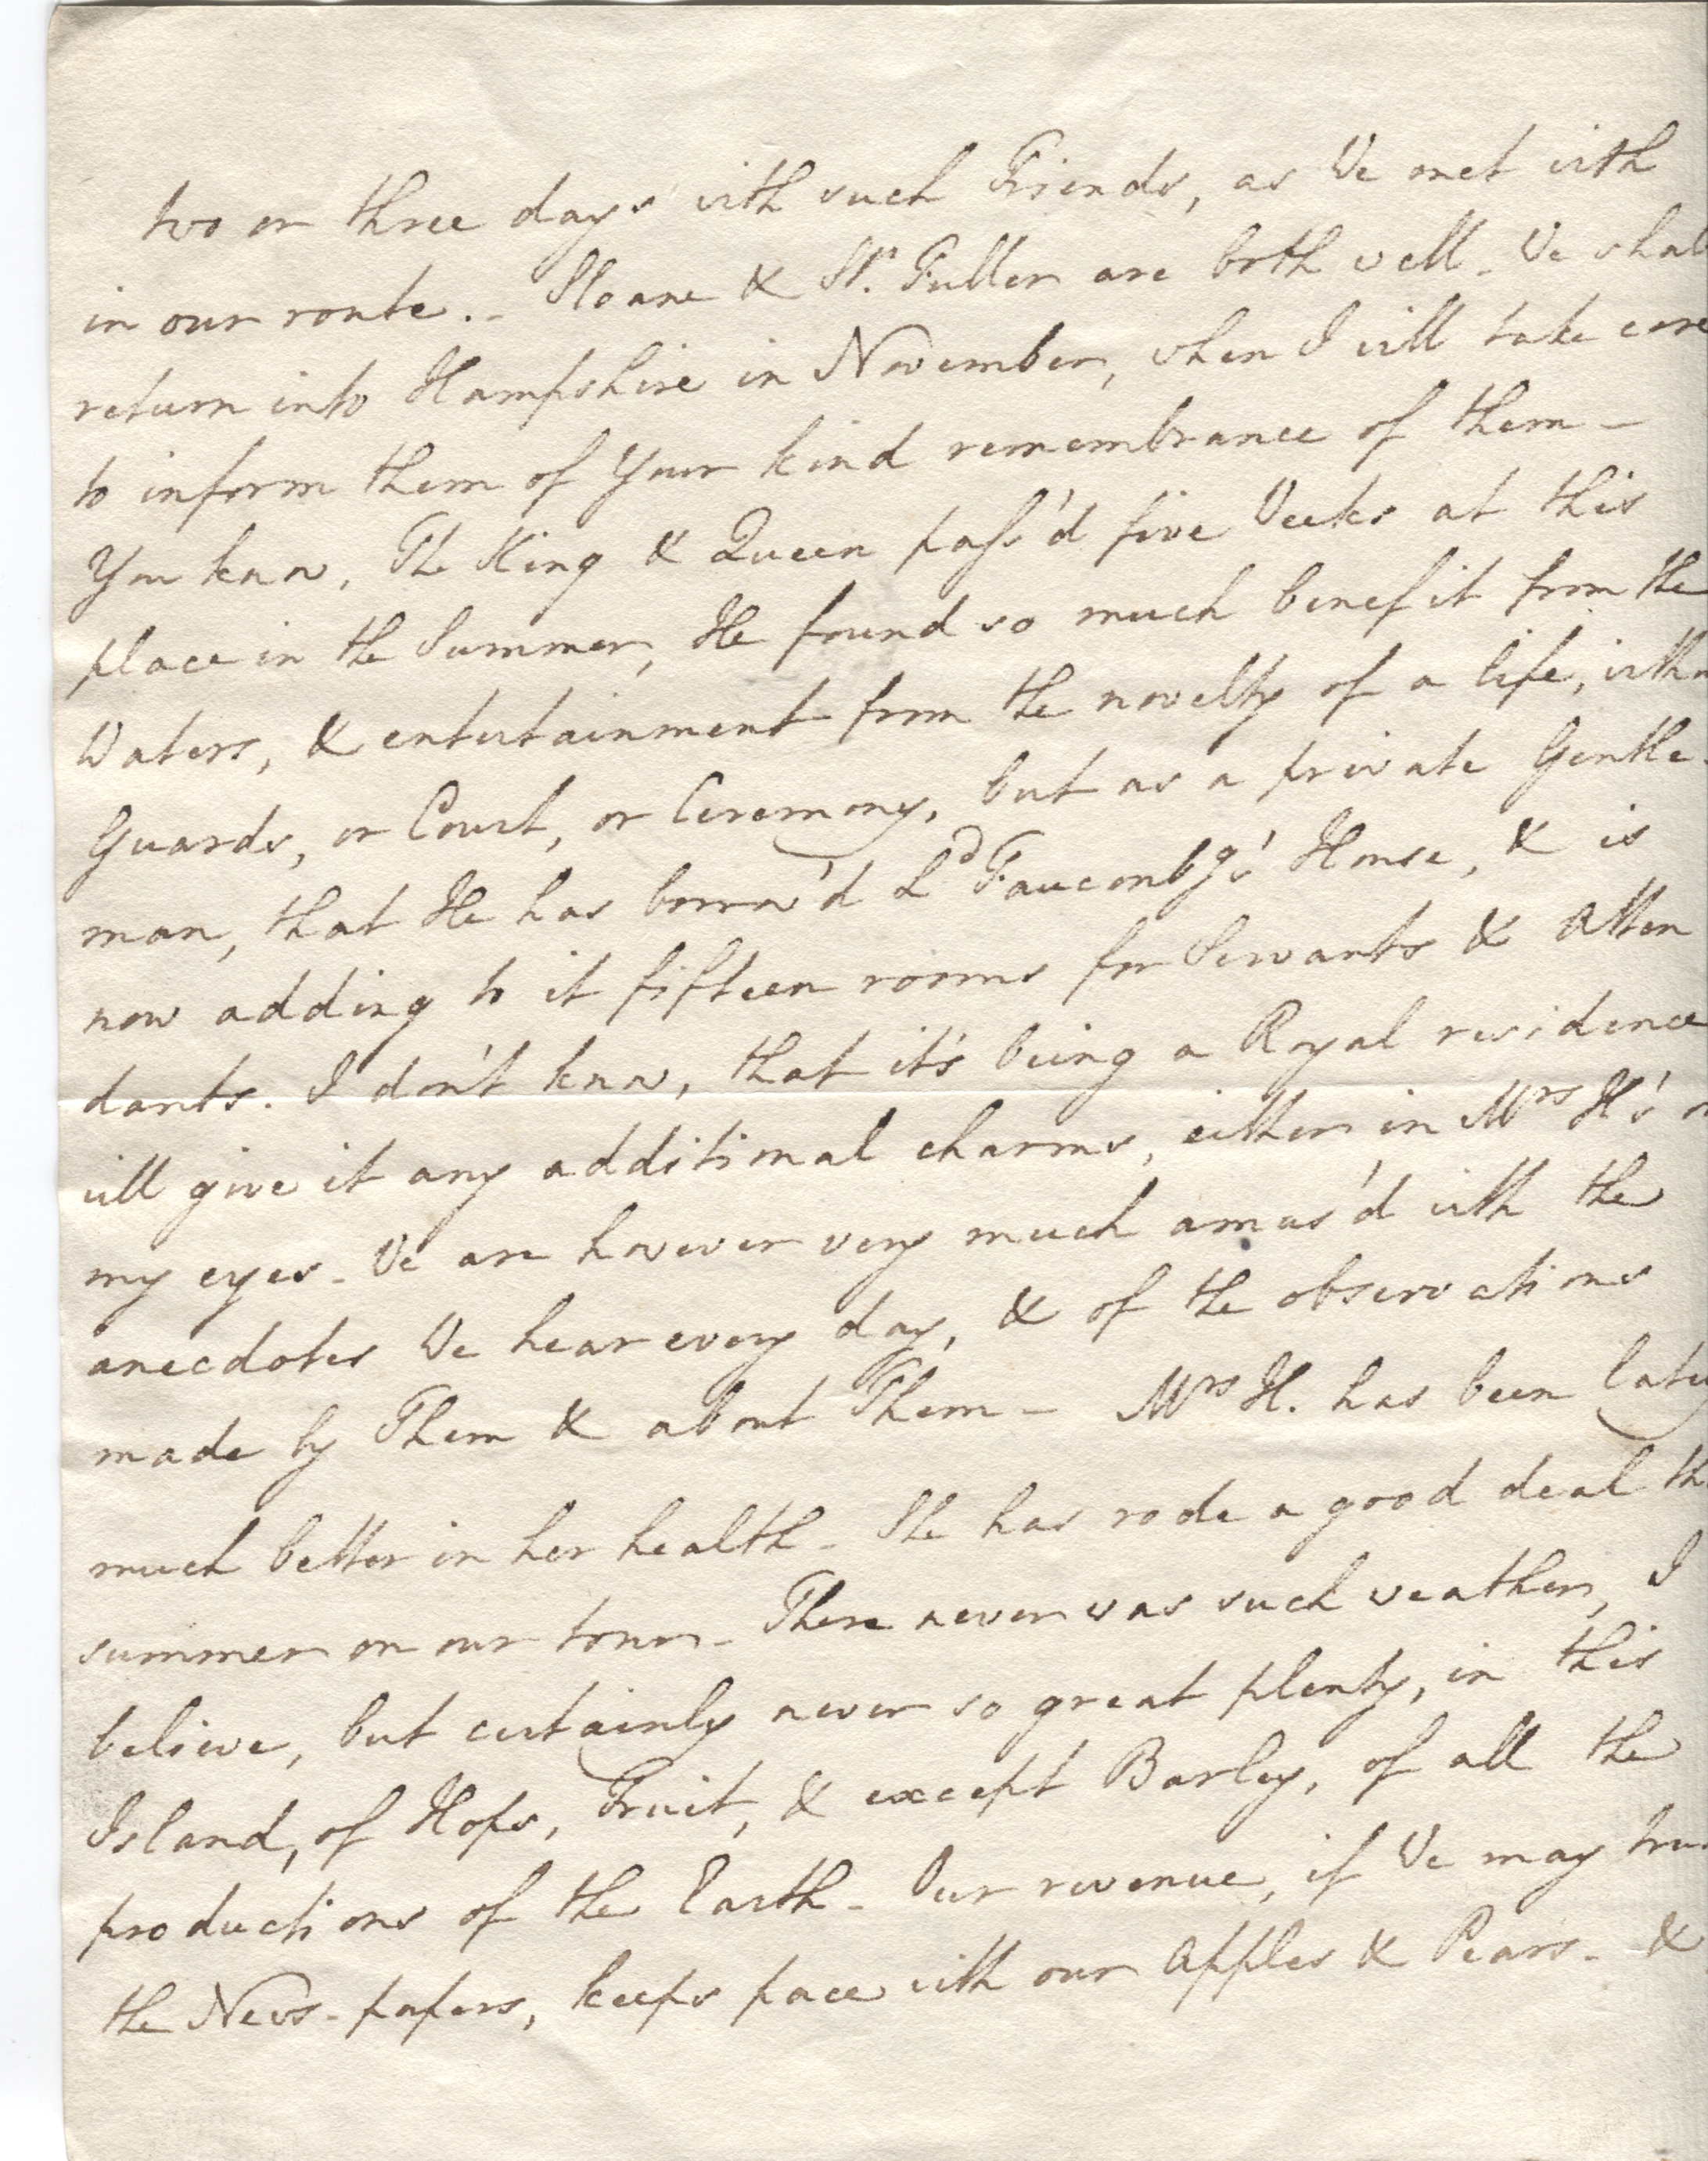 two or three days with such Friends, as We met with
in our route. - Sloane & St. Fuller are both well - We shall
return into Hampshire in November, when I will take care
to inform them of Your kind remembrance of them -
You know, The King & Queen pass'd five Weeks at this
place in the Summer, He found so much benefit from the
Waters, & entertainment from the novelty of a life, witho
Guards, or Court, or Ceremony, but as a private Gentle-
man, that He has borrow'd Ld Fauconbg's House, & is
now adding to it fifteen rooms for Servants & Atten
dants. I don't know, that it's being a Royal residence
will give it any additional charms, either in Mrs H's or
my eyes - We are however very much amus'd with the
anecdotes We hear every day, & of the observations
made by Them & about Them - Mrs H. has been lately
much better in her health - She has rode a good deal th
summer on our tour - There never was such weather, I
believe, but certainly never so great plenty, in this
Island, of Hops, Fruit, & except Barley, of all the
productions of the Earth - Our revenue, if We may trus
the News-papers, keeps pace with our Apples & Pears - &